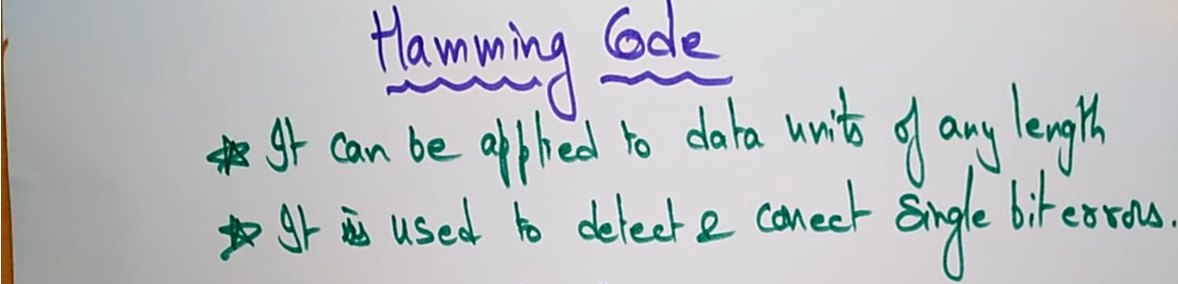 Hamming Code
* It can be applied to data units of any length
* It is used to detect & correct single bit errors.